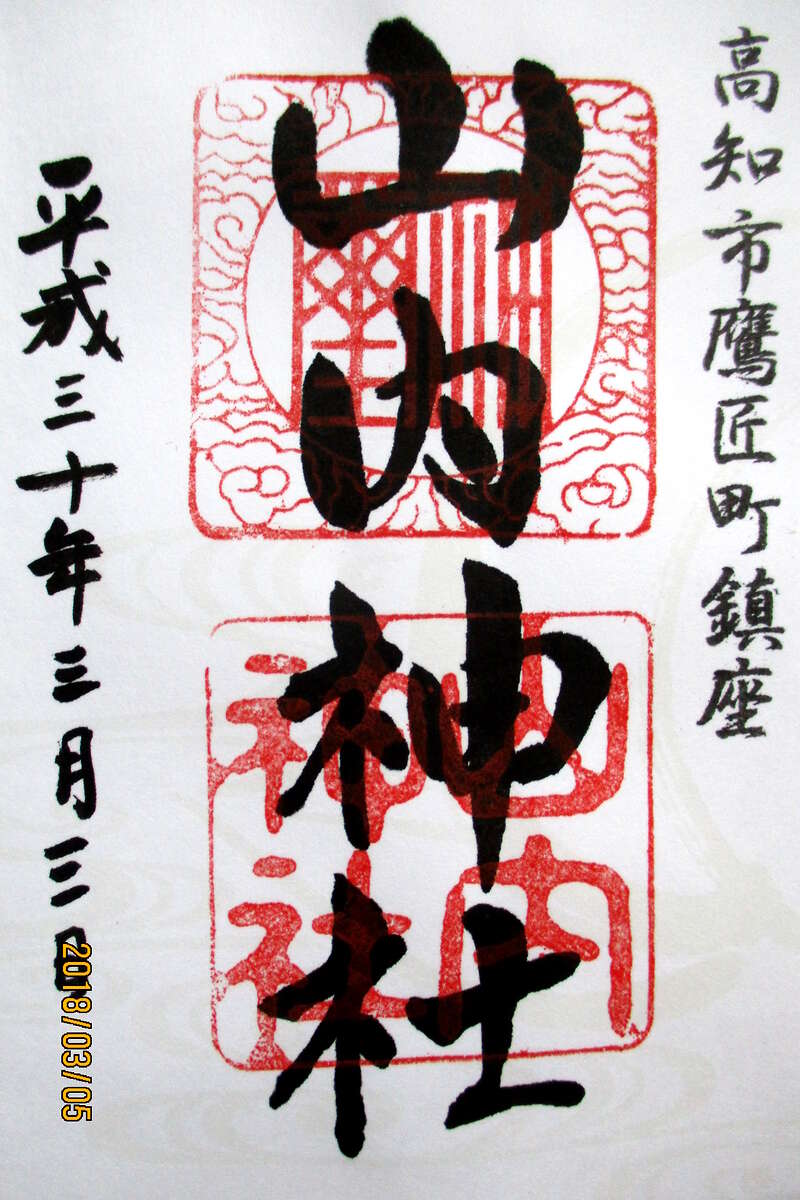 高知市鷹匠町鎮座
山内神社
山内
神社
平成三十年三月三日
2018/03/05